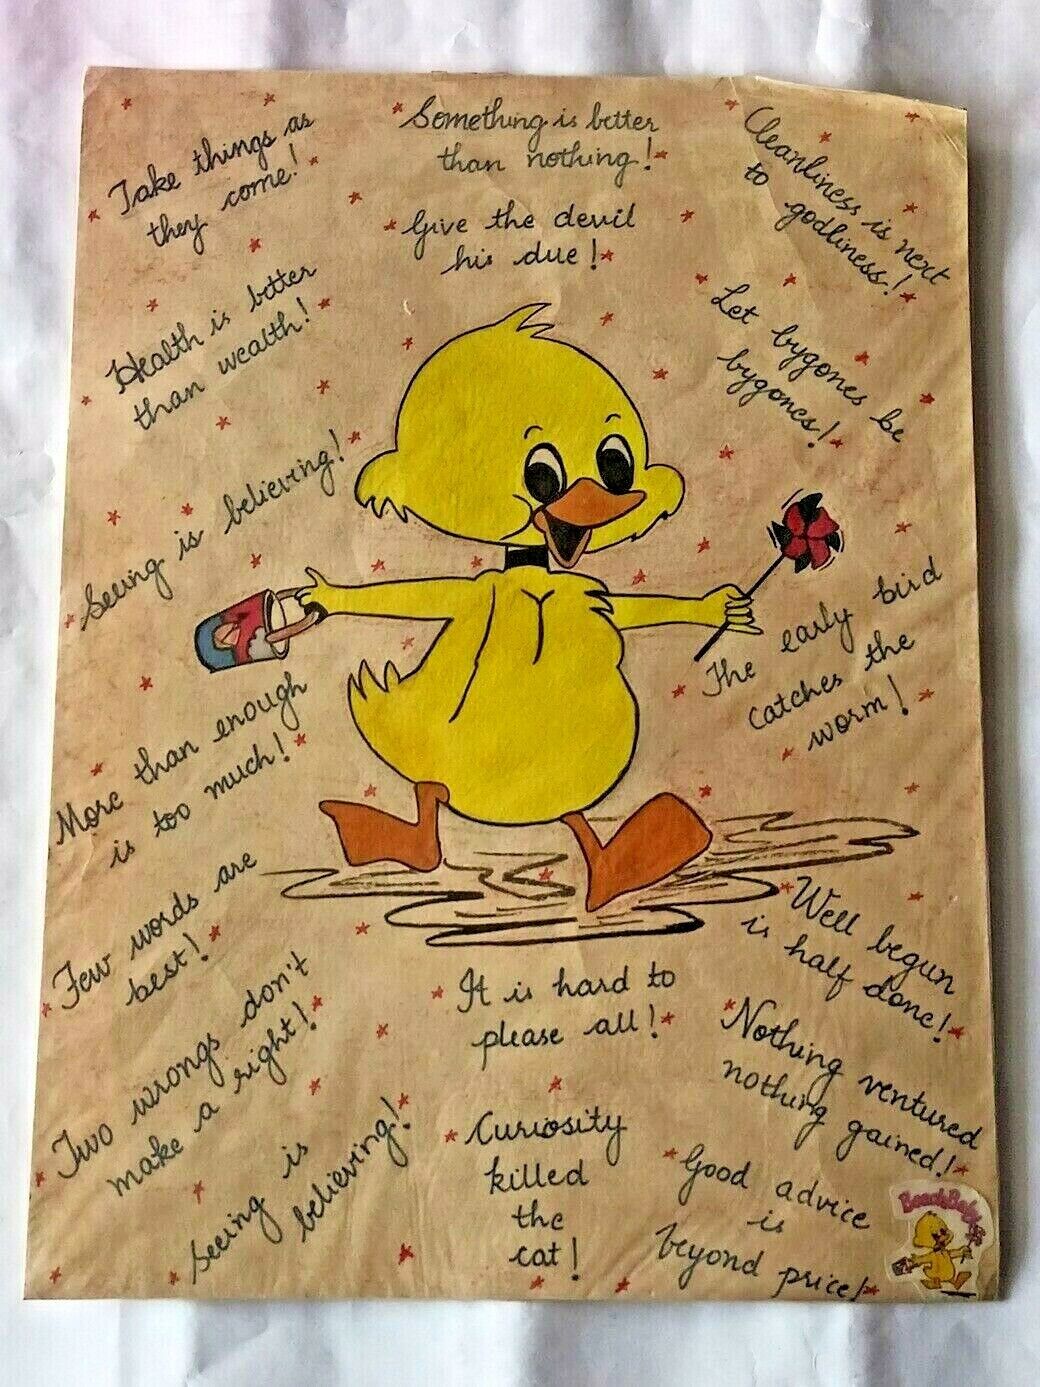 Take things as
they come!
Something is better
than nothing!
Cleanliness is next
to godliness!
Give the devil
his due!
Health is better
than wealth!
Let bygones be
bygones!
Seeing is believing!
The early bird
catches the
worm!
More than enough
is too much!
Few words are
best!
Well begun
is half done!
Two wrongs don't
make a right!
It is hard to
please all!
Nothing ventured
nothing gained!
Seeing is
believing!
Curiosity
killed
the
cat!
Good advice
is
beyond price!
BeachBaby